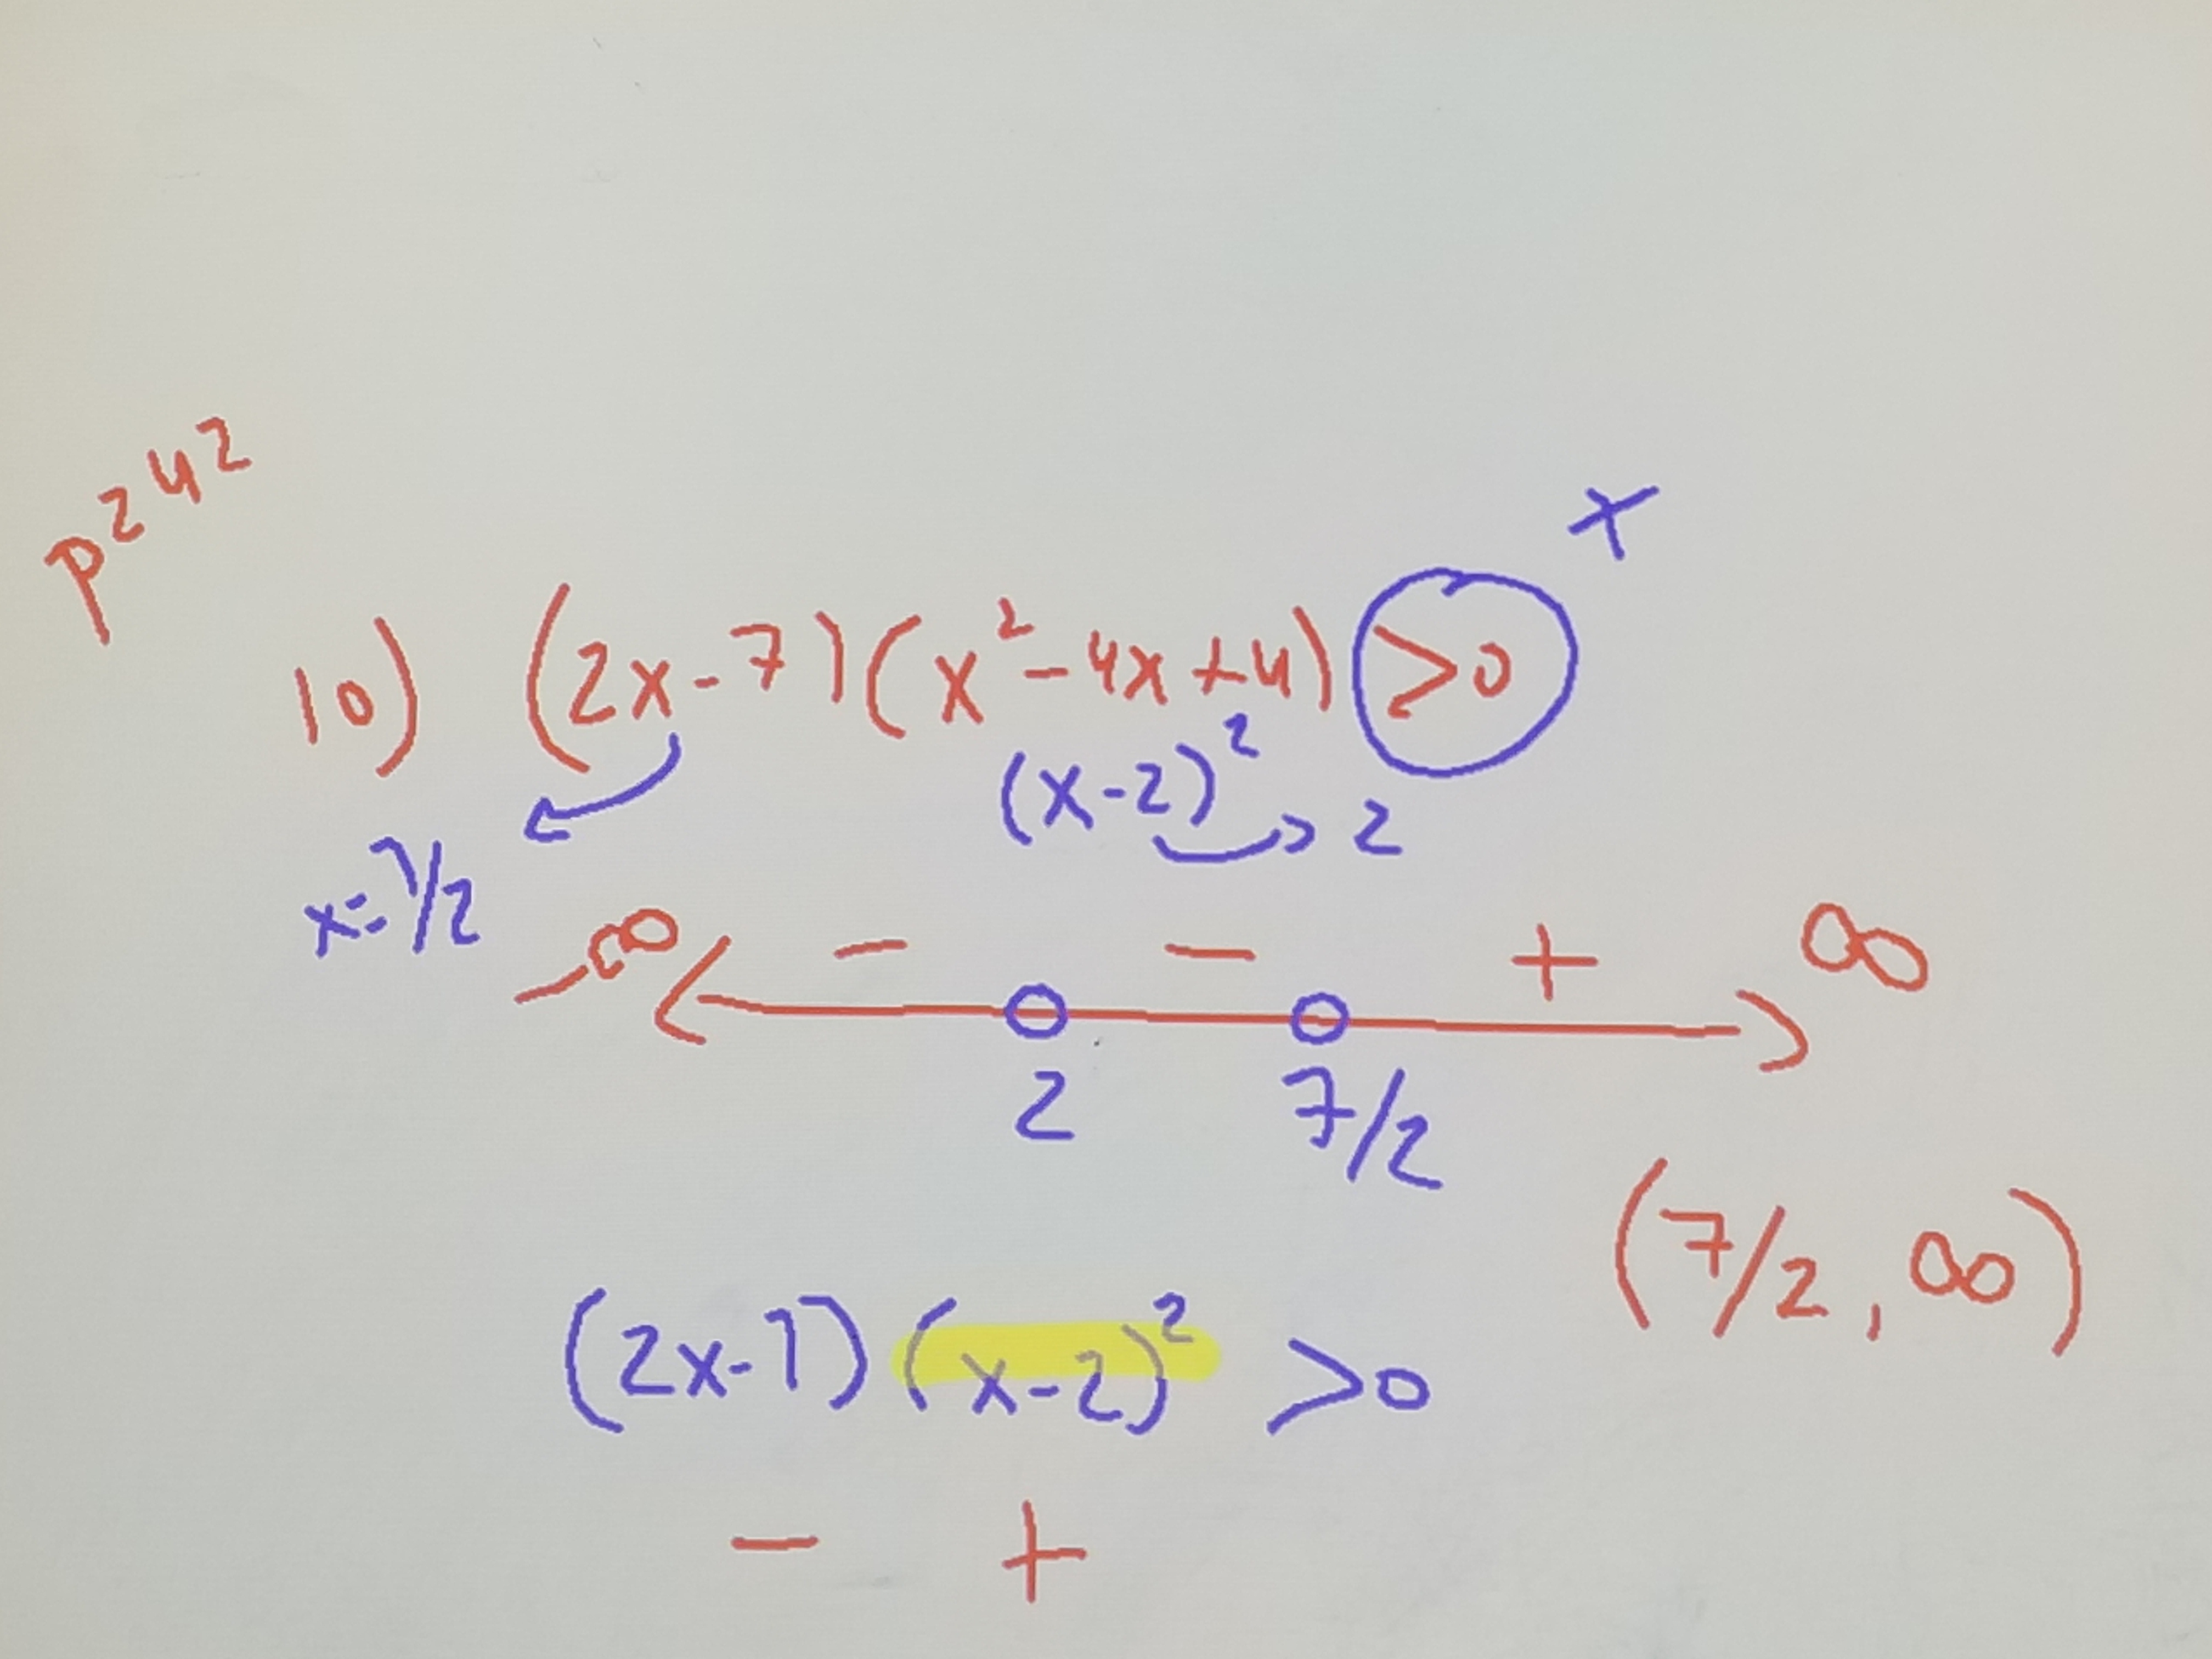 p242
+
10) (2x-7)(x²-4x+4) >0
(x-2)² → 2
x=7/2
-∞ - - + ∞
2 7/2
(7/2, ∞)
(2x-7)(x-2)² >0
- +